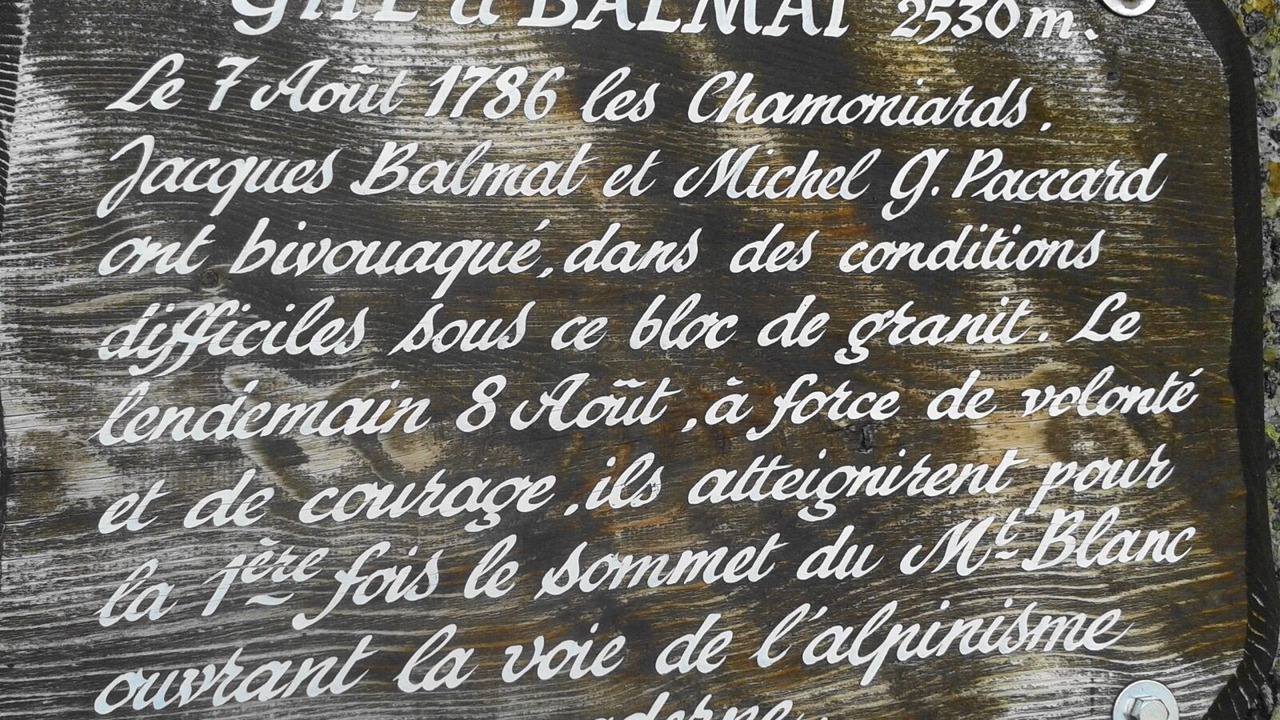 GITE à BALMAT 2530 m.
Le 7 Août 1786 les Chamoniards,
Jacques Balmat et Michel G. Paccard
ont bivouaqué, dans des conditions
difficiles sous ce bloc de granit. Le
lendemain 8 Août, à force de volonté
et de courage, ils atteignirent pour
la 1ère fois le sommet du Mt Blanc
ouvrant la voie de l'alpinisme
moderne.